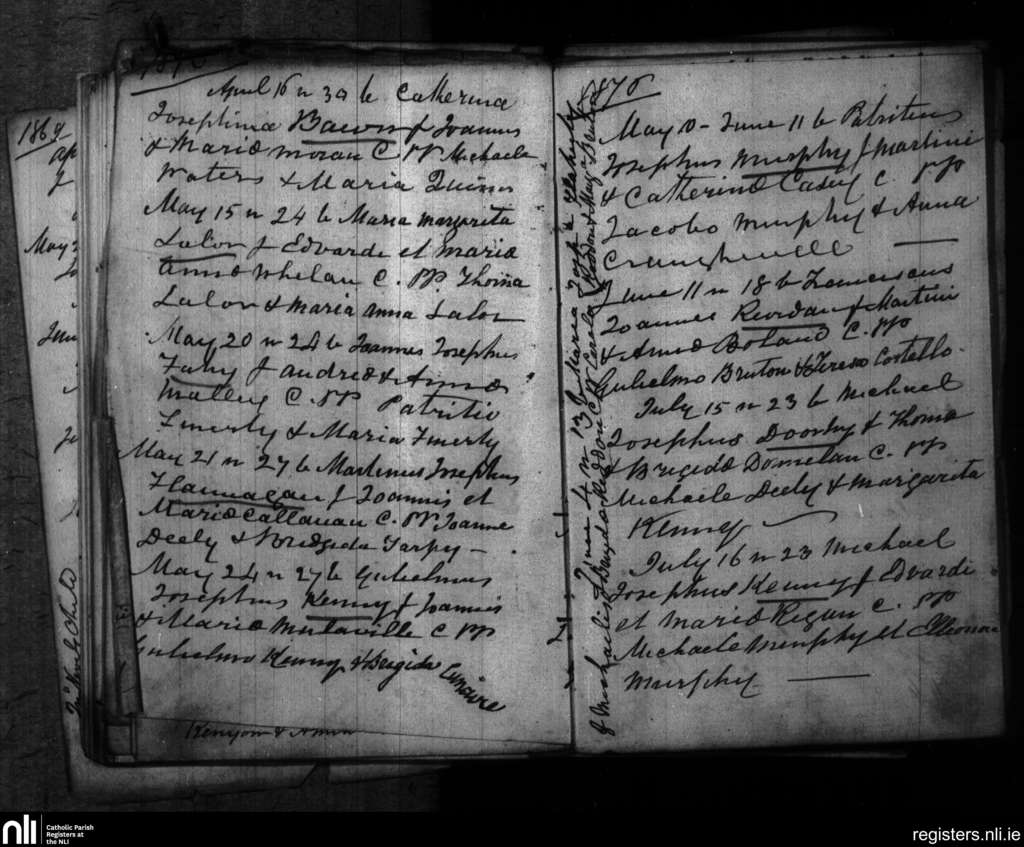 1869
1876
April 16 n 30 b Catherina
Josephina Bacon f Joannis
& Maria Moran C. PP Michaele
Waters & Maria Quinn
May 15 n 24 b Maria Margarita
Lalor f Edvardi et Maria
Anna Whelan C. PP. Thoma
Lalor & Maria Anna Lalor
May 20 n 24 b Joannes Josephus
Fahy f Andrea & Anna
Malley C. PP Patritio
Finerty & Maria Finerty
May 21 n 27 b Martinus Josephus
Flannagan f Joannis et
Maria Callanan C. PP Joanne
Deely & Brigida Tarpy —
May 24 n 27 b Gulielmus
Josephus Kenny f Joannis
& Maria Mulaville C PP
Gulielmo Kenny & Brigida
Kenyon & Anna
1876
May 0 - June 11 b Patritius
Josephus Murphy f Martini
& Catherina Casey C. PP
Jacobo Murphy & Anna
Craughwell
June 11 n 18 b Franciscus
Joannes Reordan f Martini
& Anna Boland C. PP
Gulielmo Bruton & Teresa Costello.
July 15 n 23 b Michael
Josephus Doorhy f Thoma
& Brigida Donnelan C. PP
Michaele Deely & Margarita
Kenny
July 16 n 23 Michael
Josephus Kenny f Edvardi
et Maria Regan C. PP
Michaele Murphy et Elleonora
Murphy
June 4 n 13 Maria Flaherty
f Michaelis & Brigida
nli
Catholic Parish
Registers at
the NLI
registers.nli.ie